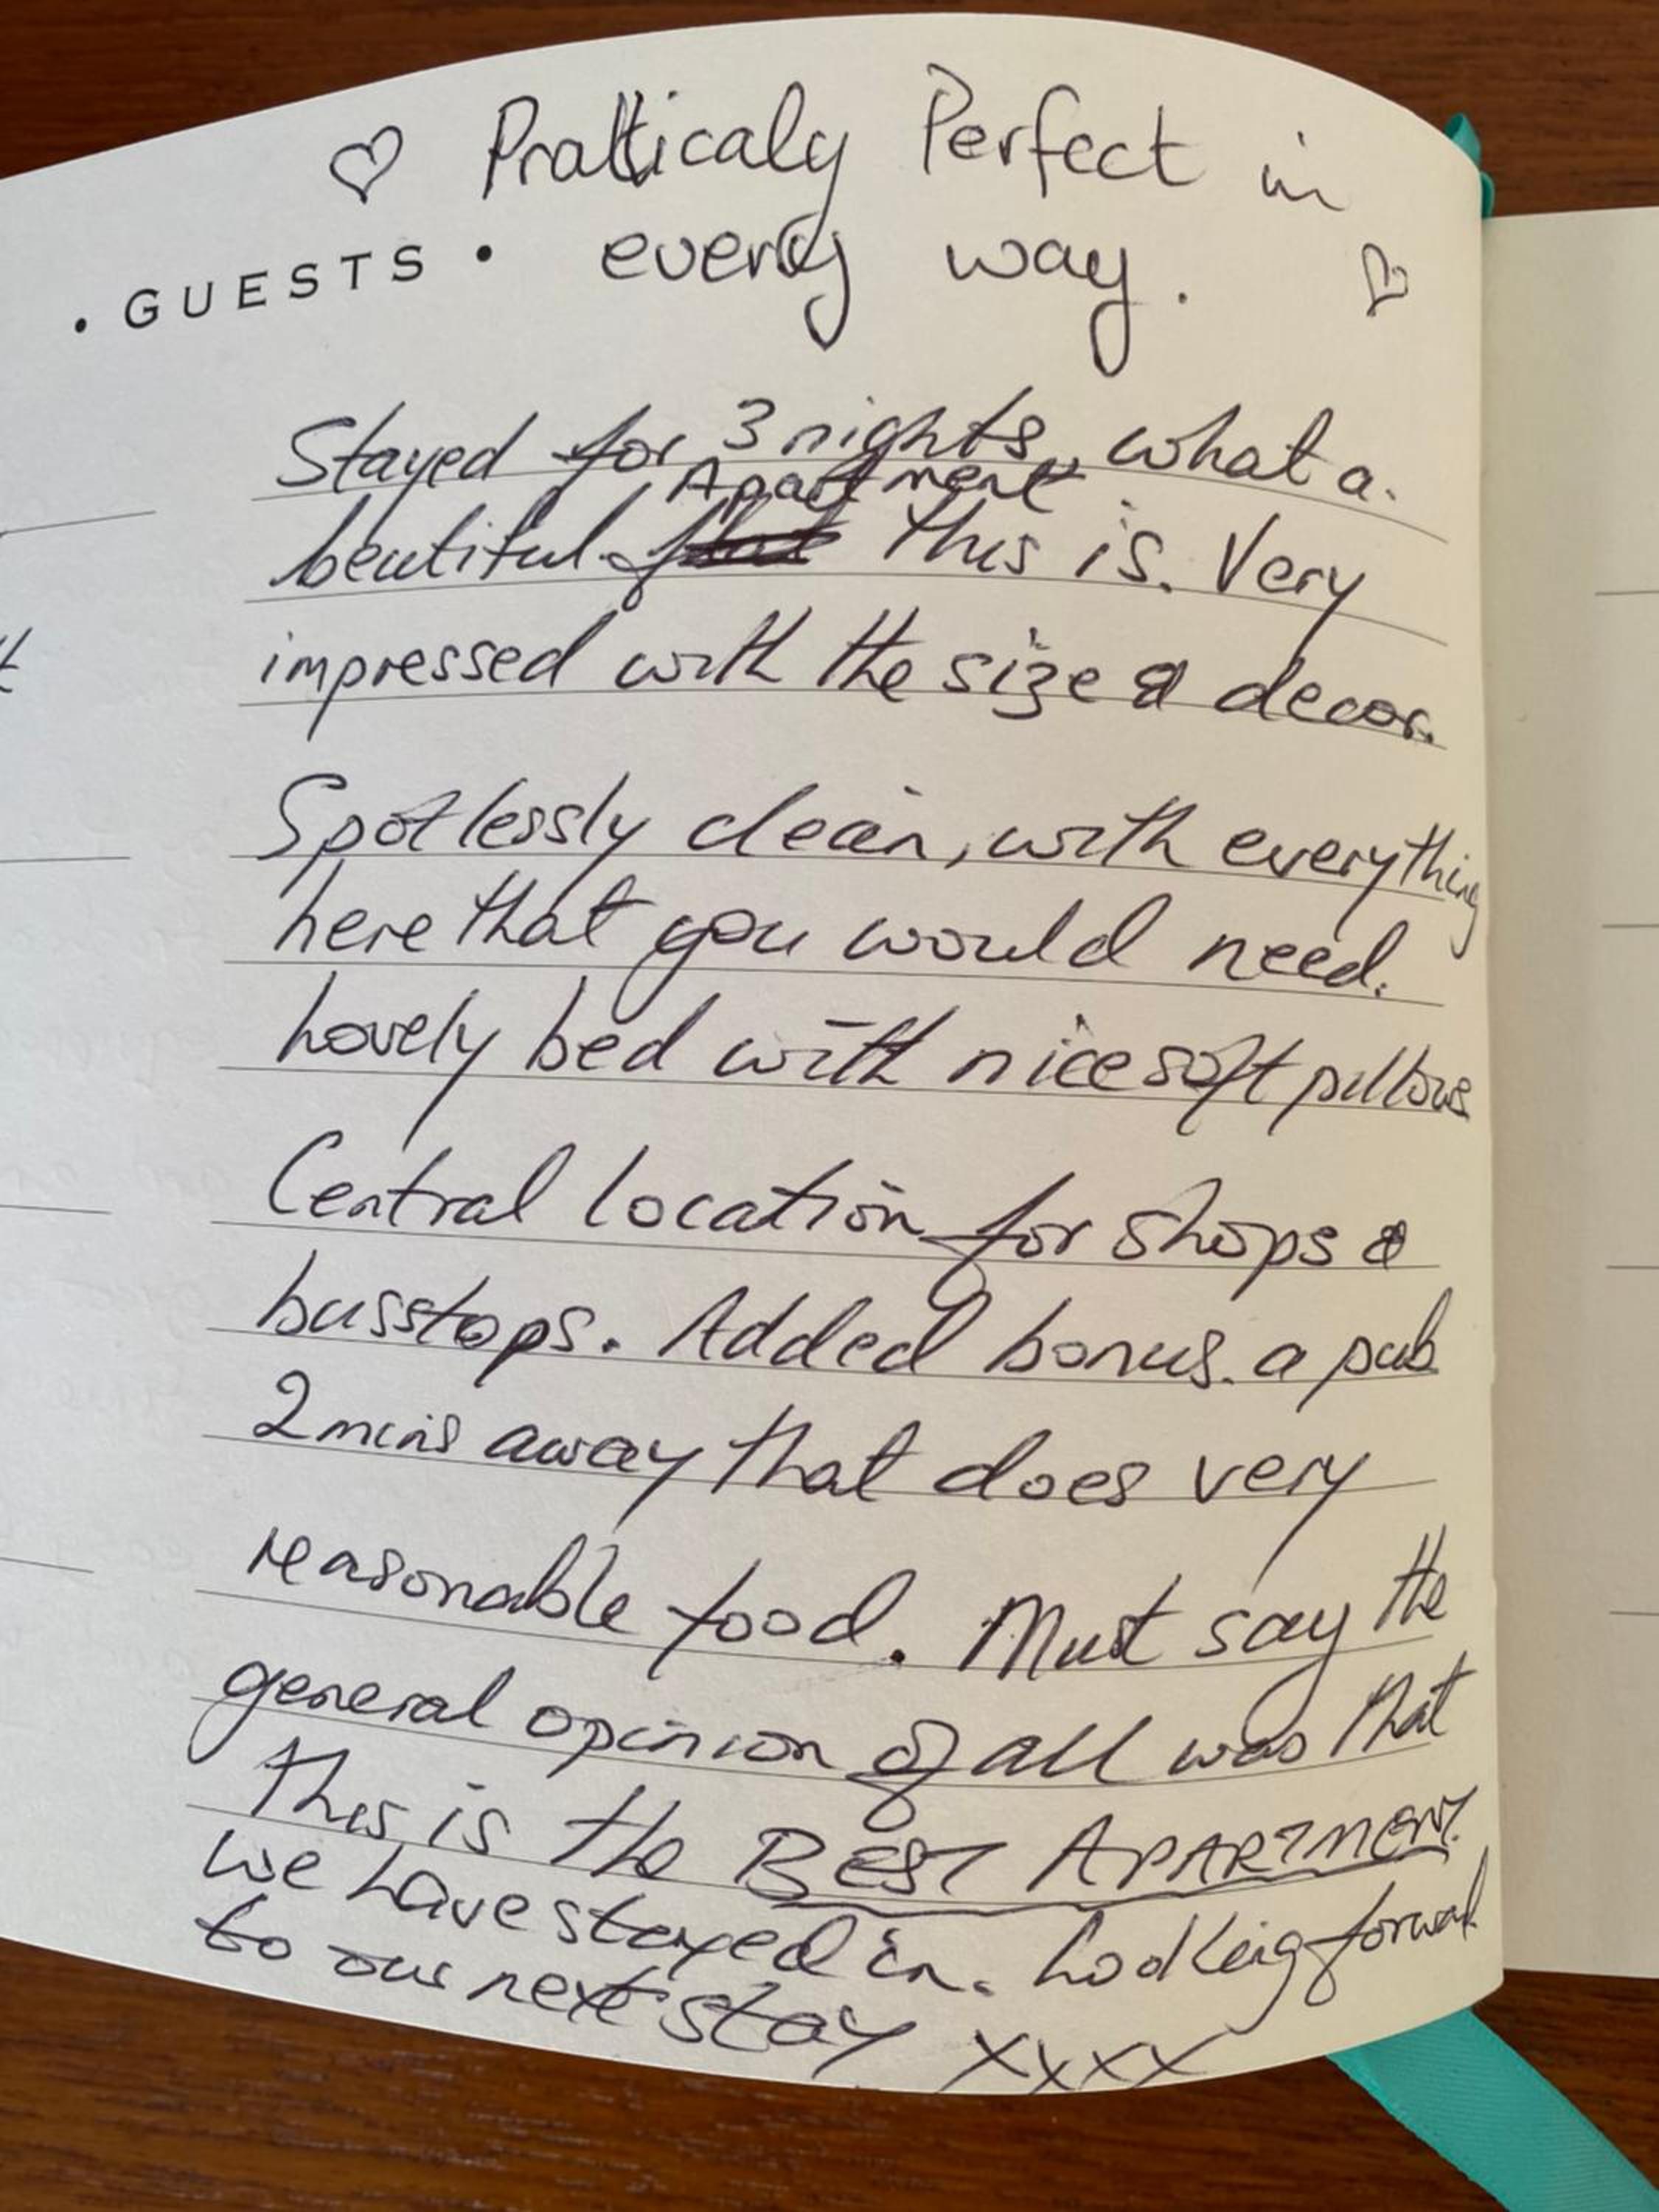 ♡ Pratticaly Perfect in
• GUESTS • every way. ♡
Stayed for 3 nights, what a
beutiful Apartment this is. Very
impressed with the size & decor.
Spotlessly clean, with everything
here that you would need.
Lovely bed with nice soft pillows
Central location for shops &
busstops. Added bonus. a pub
2 mins away that does very
reasonable food. Must say the
general opinion of all was that
this is the BEST APARTMENT
we have stayed in. Looking forward
to our next stay xxxx